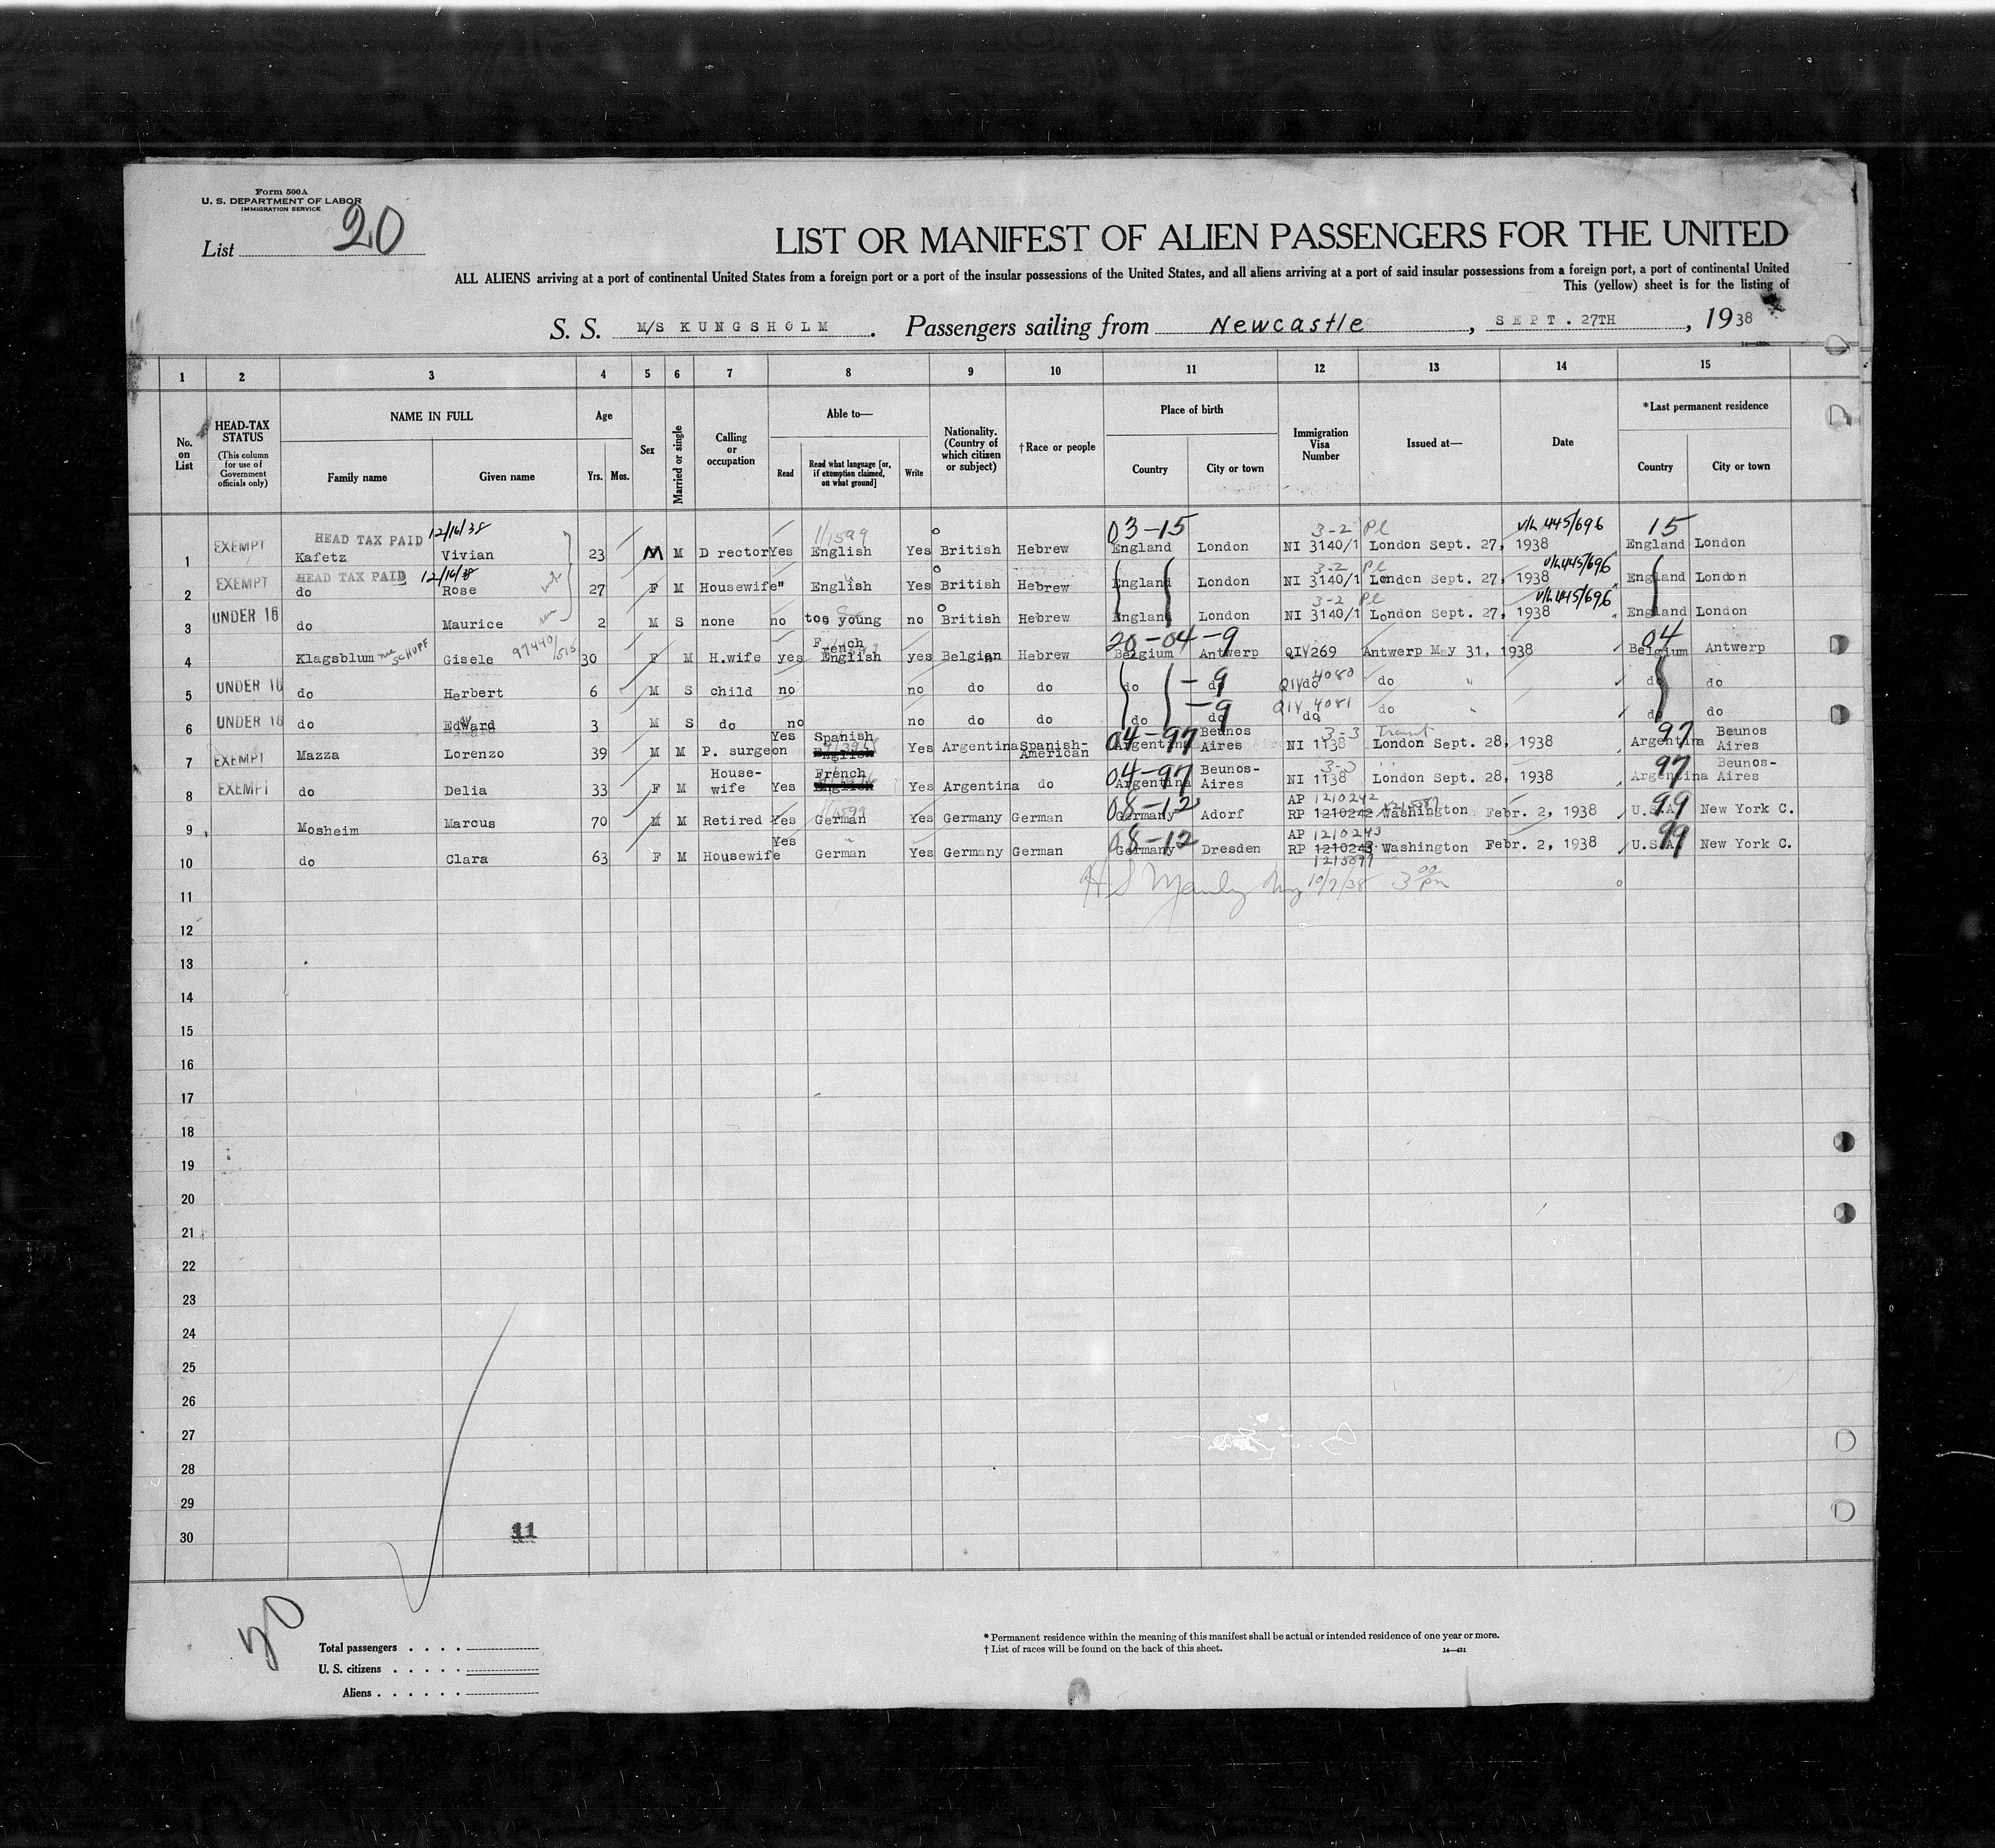 Form 500A
U. S. DEPARTMENT OF LABOR
IMMIGRATION SERVICE
List 20
LIST OR MANIFEST OF ALIEN PASSENGERS FOR THE UNITED
ALL ALIENS arriving at a port of continental United States from a foreign port or a port of the insular possessions of the United States, and all aliens arriving at a port of said insular possessions from a foreign port, a port of continental United
This (yellow) sheet is for the listing of
S. S. M/S KUNGSHOLM. Passengers sailing from Newcastle, SEPT. 27TH, 1938
1 2 3 4 5 6 7 8 9 10 11 12 13 14 15
No. on List
HEAD-TAX STATUS (This column for use of Government officials only)
NAME IN FULL Family name Given name
Age Yrs. Mos.
Sex
Married or single
Calling or occupation
Able to— Read Read what language [or, if exemption claimed, on what ground] Write
Nationality. (Country of which citizen or subject)
†Race or people
Place of birth Country City or town
Immigration Visa Number
Issued at—
Date
*Last permanent residence Country City or town
HEAD TAX PAID 12/16/38 11599 03-15 3-2 Pl v/L 445/696 15
1 EXEMPT Kafetz Vivian 23 M M D rector Yes English Yes British Hebrew England London NI 3140/1 London Sept. 27, 1938 England London
HEAD TAX PAID 12/16/38 3-2 Pl v/L 445/696
2 EXEMPT do Rose 27 F M Housewife " English Yes British Hebrew England London NI 3140/1 London Sept. 27, 1938 England London
3-2 Pl v/L 445/696
3 UNDER 16 do Maurice 2 M S none no too young no British Hebrew England London NI 3140/1 London Sept. 27, 1938 England London
French 20-04-9 04
4 Klagsblum née SCHUPF Gisele 97440/515 30 F M H.wife yes English yes Belgian Hebrew Belgium Antwerp QIV269 Antwerp May 31, 1938 Belgium Antwerp
5 UNDER 16 do Herbert 6 M S child no no do do do -9 do QIVdo 4080 do " do do
6 UNDER 16 do Edward 3 M S do no no do do do -9 do QIV 4081 do do " do do
Yes Spanish 04-97 Beunos 3-3 Transit 97 Beunos
7 EXEMPT Mazza Lorenzo 39 M M P. surgeon English Yes Argentina Spanish-American Argentina Aires NI 1138 London Sept. 28, 1938 Argentina Aires
House- French 04-97 Beunos- 3-3 97 Beunos-
8 EXEMPT do Delia 33 F M wife Yes English Yes Argentina do Argentina Aires NI 1138 London Sept. 28, 1938 Argentina Aires
11599 08-12 AP 1210242 99
9 Mosheim Marcus 70 M M Retired Yes German Yes Germany German Germany Adorf RP 1210242 Washington Febr. 2, 1938 U.S.A. New York C.
Yes 08-12 AP 1210243 99
10 do Clara 63 F M Housewife German Yes Germany German Germany Dresden RP 1210243 Washington Febr. 2, 1938 U.S.A. New York C.
10/7/38 3 00 pm
11
12
13
14
15
16
17
18
19
20
21
22
23
24
25
26
27
28
29
30
11
20
Total passengers
U. S. citizens
Aliens
* Permanent residence within the meaning of this manifest shall be actual or intended residence of one year or more.
† List of races will be found on the back of this sheet.
14—431